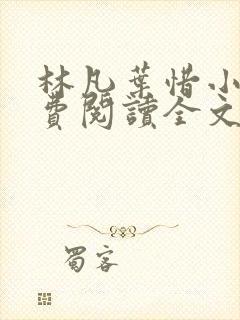 林凡葉惜小
費閱讀全文
蜀客